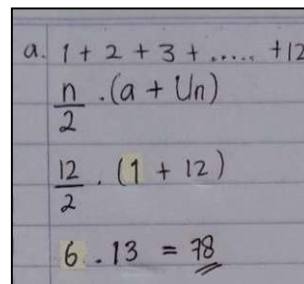 a. 1 + 2 + 3 + ..... + 12
n/2 . (a + Un)
12/2 . (1 + 12)
6 . 13 = 78